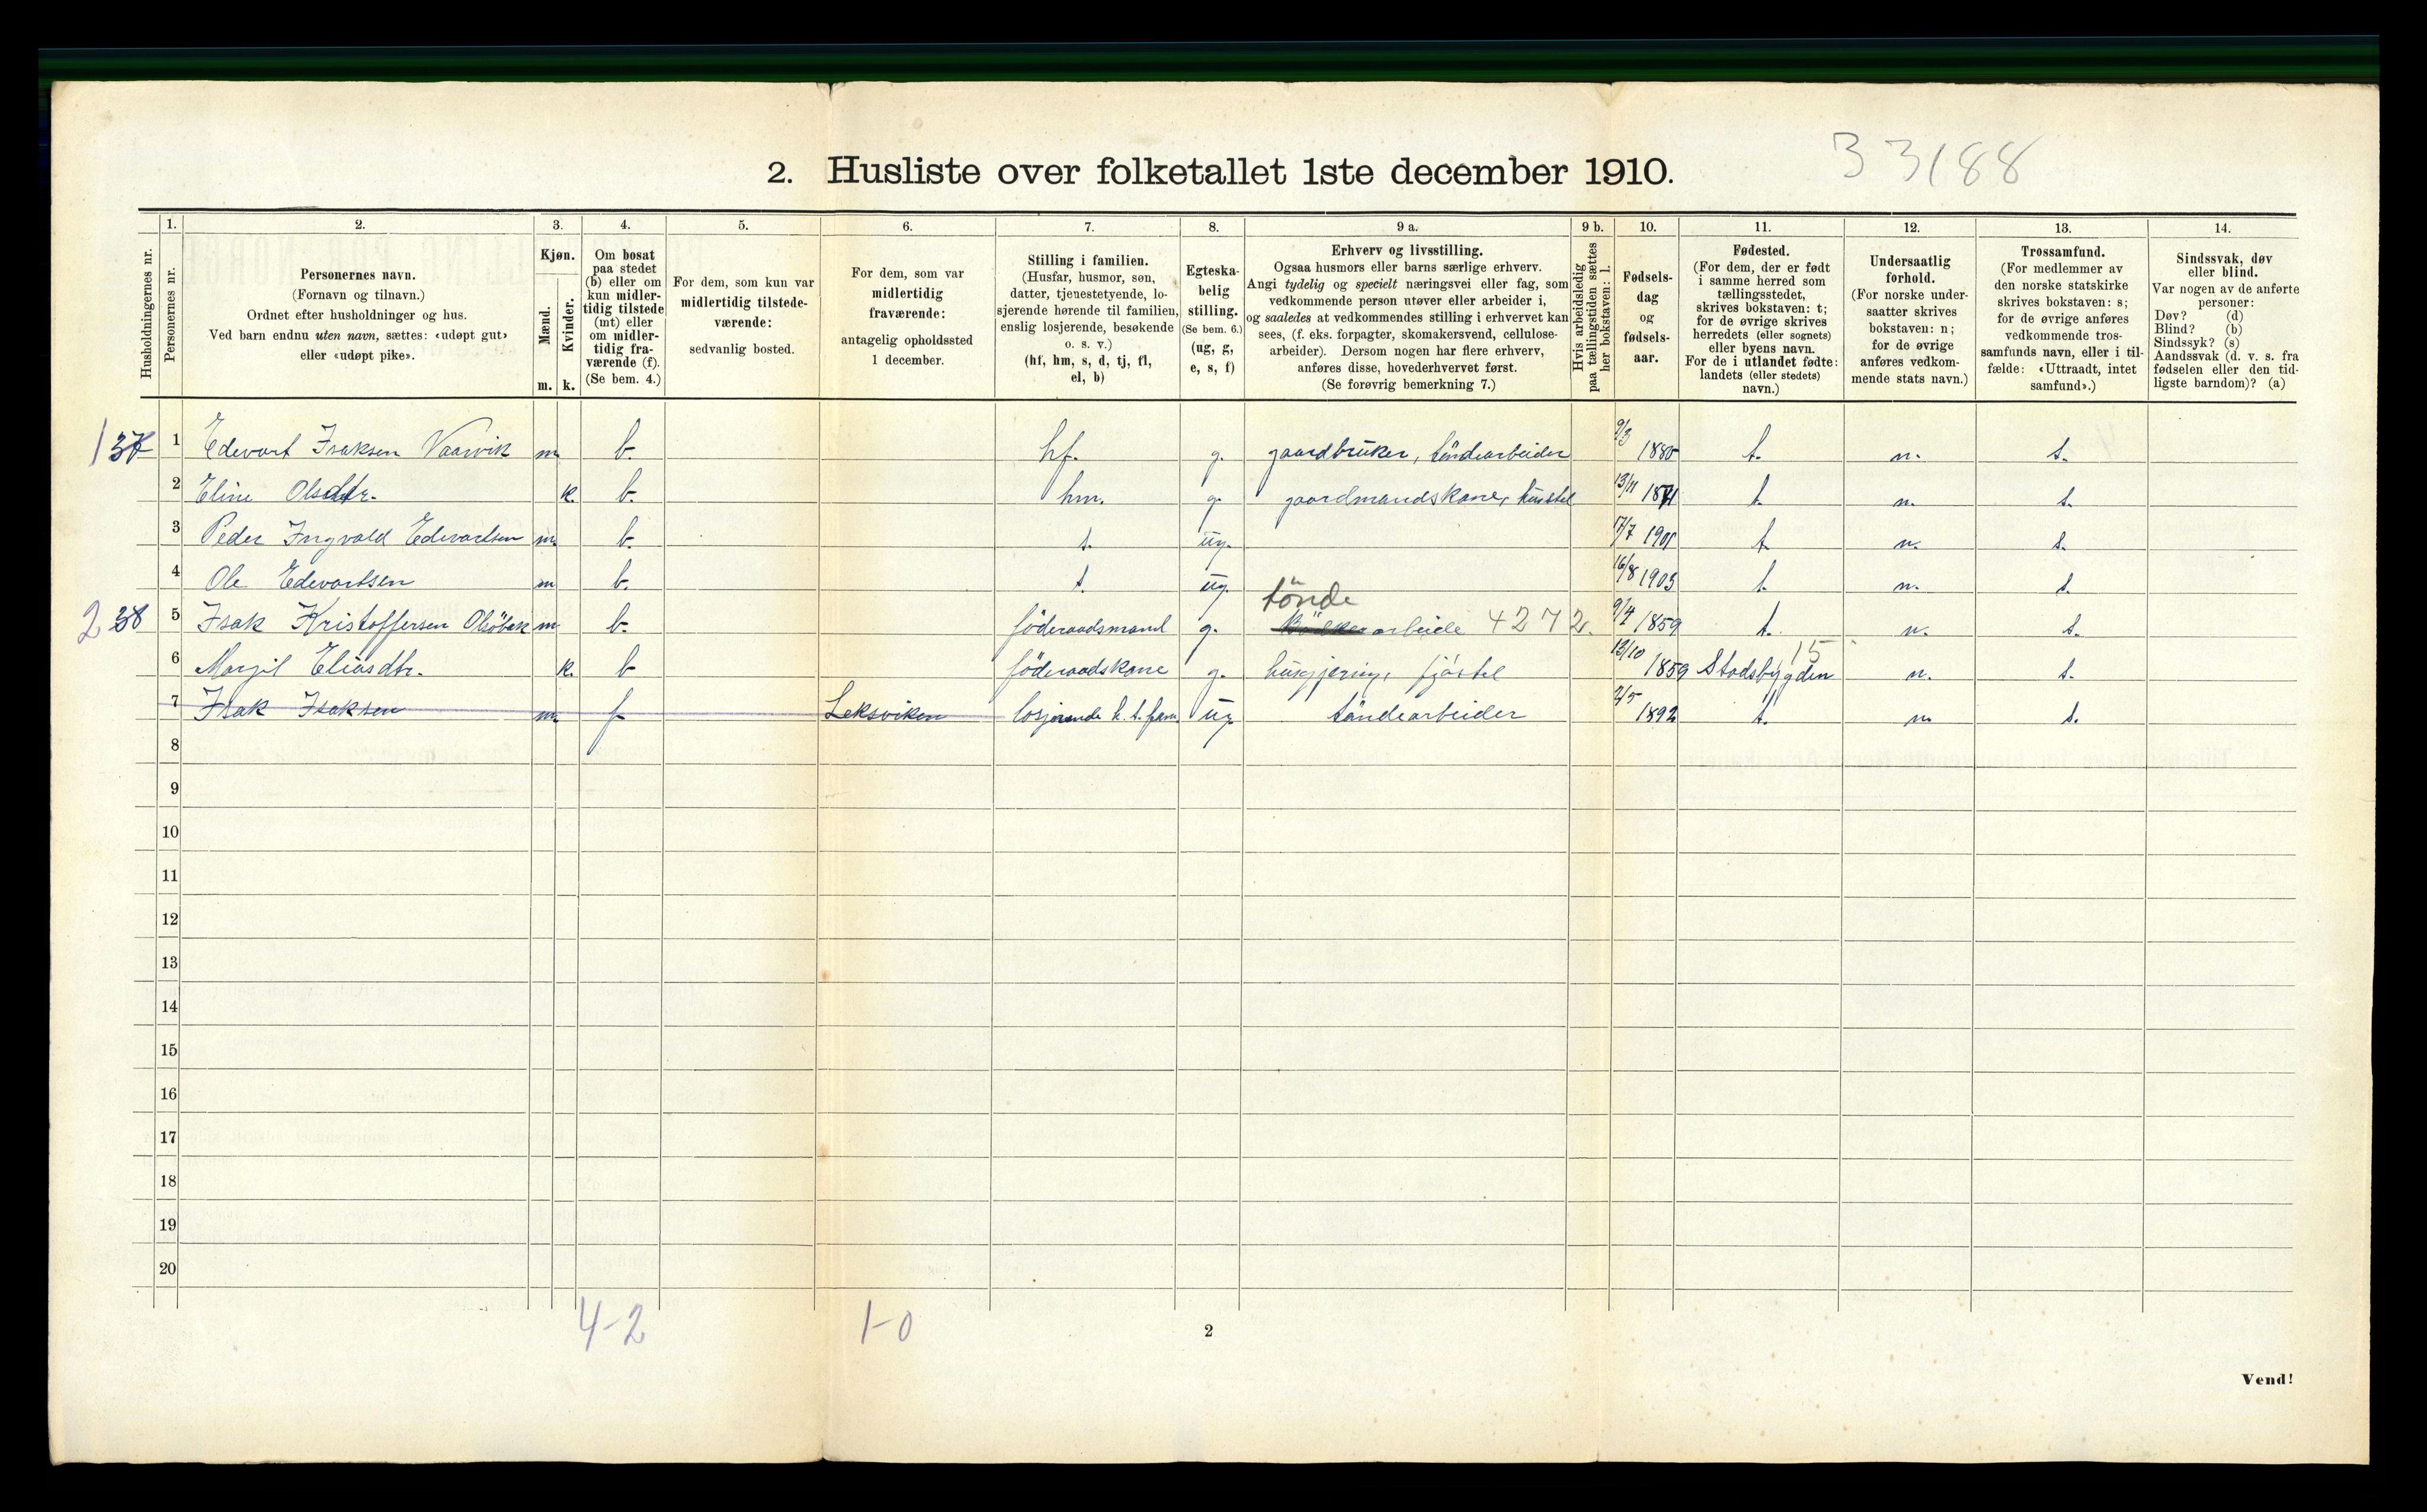 2. Husliste over folketallet 1ste december 1910.
33188
1. 2. 3. 4. 5. 6. 7. 8. 9 a. 9 b. 10. 11. 12. 13. 14.
Husholdningernes nr.
Personernes nr.
Personernes navn.
(Fornavn og tilnavn.)
Ordnet efter husholdninger og hus.
Ved barn endnu uten navn, sættes: «udøpt gut»
eller «udøpt pike».
Kjøn.
Mænd.
Kvinder.
m. k.
Om bosat
paa stedet
(b) eller om
kun midler-
tidig tilstede
(mt) eller
om midler-
tidig fra-
værende (f).
(Se bem. 4.)
For dem, som kun var
midlertidig tilstede-
værende:
sedvanlig bosted.
For dem, som var
midlertidig
fraværende:
antagelig opholdssted
1 december.
Stilling i familien.
(Husfar, husmor, søn,
datter, tjenestetyende, lo-
sjerende hørende til familien,
enslig losjerende, besøkende
o. s. v.)
(hf, hm, s, d, tj, fl,
el, b)
Egteska-
belig
stilling.
(Se bem. 6.)
(ug, g,
e, s, f)
Erhverv og livsstilling.
Ogsaa husmors eller barns særlige erhverv.
Angi tydelig og specielt næringsvei eller fag, som
vedkommende person utøver eller arbeider i,
og saaledes at vedkommendes stilling i erhvervet kan
sees, (f. eks. forpagter, skomakersvend, cellulose-
arbeider). Dersom nogen har flere erhverv,
anføres disse, hovederhvervet først.
(Se forøvrig bemerkning 7.)
Hvis arbeidsledig
paa tællingstiden sættes
her bokstaven: l.
Fødsels-
dag
og
fødsels-
aar.
Fødested.
(For dem, der er født
i samme herred som
tællingsstedet,
skrives bokstaven: t;
for de øvrige skrives
herredets (eller sognets)
eller byens navn.
For de i utlandet fødte:
landets (eller stedets)
navn.)
Undersaatlig
forhold.
(For norske under-
saatter skrives
bokstaven: n;
for de øvrige
anføres vedkom-
mende stats navn.)
Trossamfund.
(For medlemmer av
den norske statskirke
skrives bokstaven: s;
for de øvrige anføres
vedkommende tros-
samfunds navn, eller i til-
fælde: «Uttraadt, intet
samfund».)
Sindssvak, døv
eller blind.
Var nogen av de anførte
personer:
Døv? (d)
Blind? (b)
Sindssyk? (s)
Aandssvak (d. v. s. fra
fødselen eller den tid-
ligste barndom)? (a)
1 37 1 Edevart Isaksen Vaarvik m b. hf. g. gaardbruker, töndearbeider 9/3 1880 t. n. s.
2 Eline Olsdtr. k. b. hm. g. gaardmandskone, 13/11 t. n. s.
3 Peder Ingvald Edevartsen m b. s. ug. 17/7 1901 t. n. s.
4 Ole Edevartsen m b. s. ug. 16/8 1903 t. n. s.
tönde
2 38 5 Isak Kristoffersen m b. föderaadsmand g. arbeide 4272. 9/4 1859 t. n. s.
15
6 Margit Eliasdtr. k. b föderaadskone g. husgjerning, fjöstel 13/10 1859 Stadsbygden n. s.
7 Isak Isaksen m f Leksviken losjerende h. t. fam ug töndearbeider 2/5 1892 t. n s.
8
9
10
11
12
13
14
15
16
17
18
19
20
4-2 1-0
2
Vend!